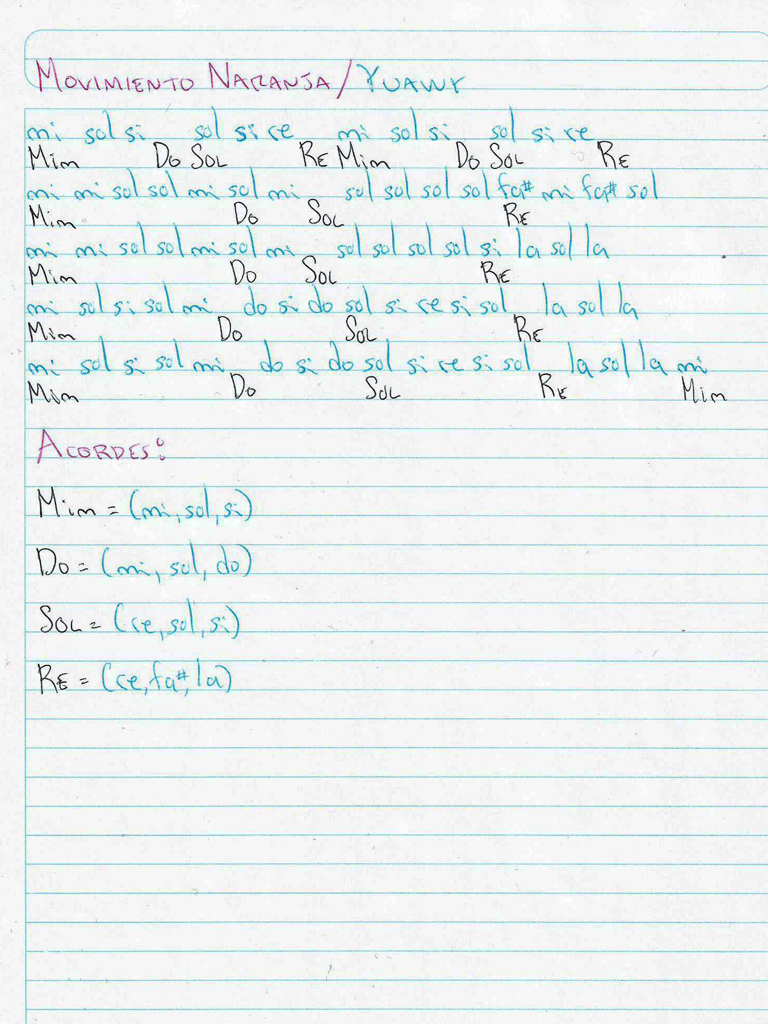 MOVIMIENTO NARANJA/YUAWY
mi sol si sol si re mi sol si sol si re
Mim Do SOL RE Mim Do SOL RE
mi mi sol sol mi sol mi sol sol sol sol fa# mi fa# sol
Mim Do SOL RE
mi mi sol sol mi sol mi sol sol sol sol si la sol la
Mim Do SOL RE
mi sol si sol mi do si do sol si re si sol la sol la
Mim Do SOL RE
mi sol si sol mi do si do sol si re si sol la sol la mi
Mim Do SOL RE Mim
ACORDES:
Mim = (mi, sol, si)
Do = (mi, sol, do)
SOL = (re, sol, si)
RE = (re, fa#, la)